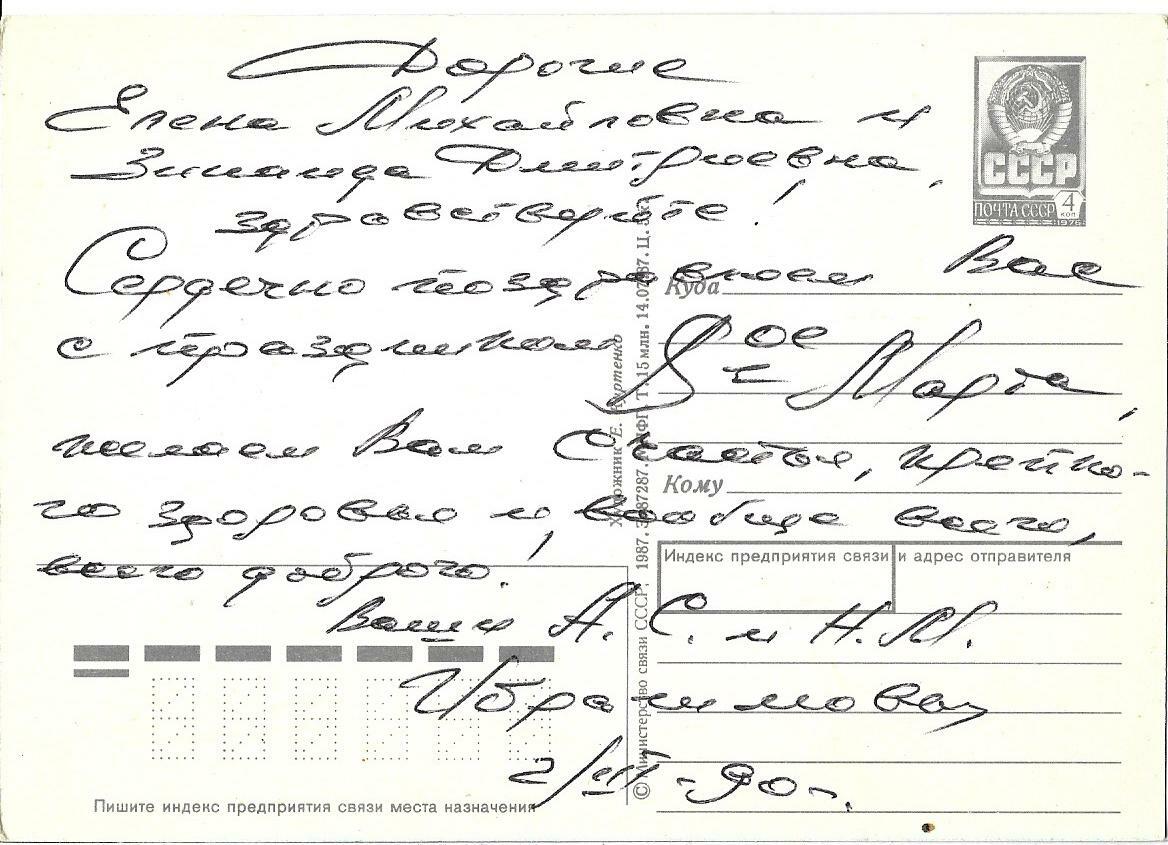 Дорогие
Елена Михайловна и
Зинаида Дмитриевна,
здравствуйте!
Сердечно поздравляем Вас
с праздником 8ое
Марта,
желаем Вам Счастья, крепко-
го здоровья и, вообще всего,
всего доброго!
Ваши А. С. и Н. М.
Ибрагимовы
2/III-90 г.
СССР
ПОЧТА СССР 4 коп
1976
Куда
Кому
Индекс предприятия связи и адрес отправителя
Пишите индекс предприятия связи места назначения
© Министерство связи СССР, 1987. З. 87287. ППФГ. Т. 15 млн. 14.07.87. Ц. 5 к.
Художник Е. Куртенко